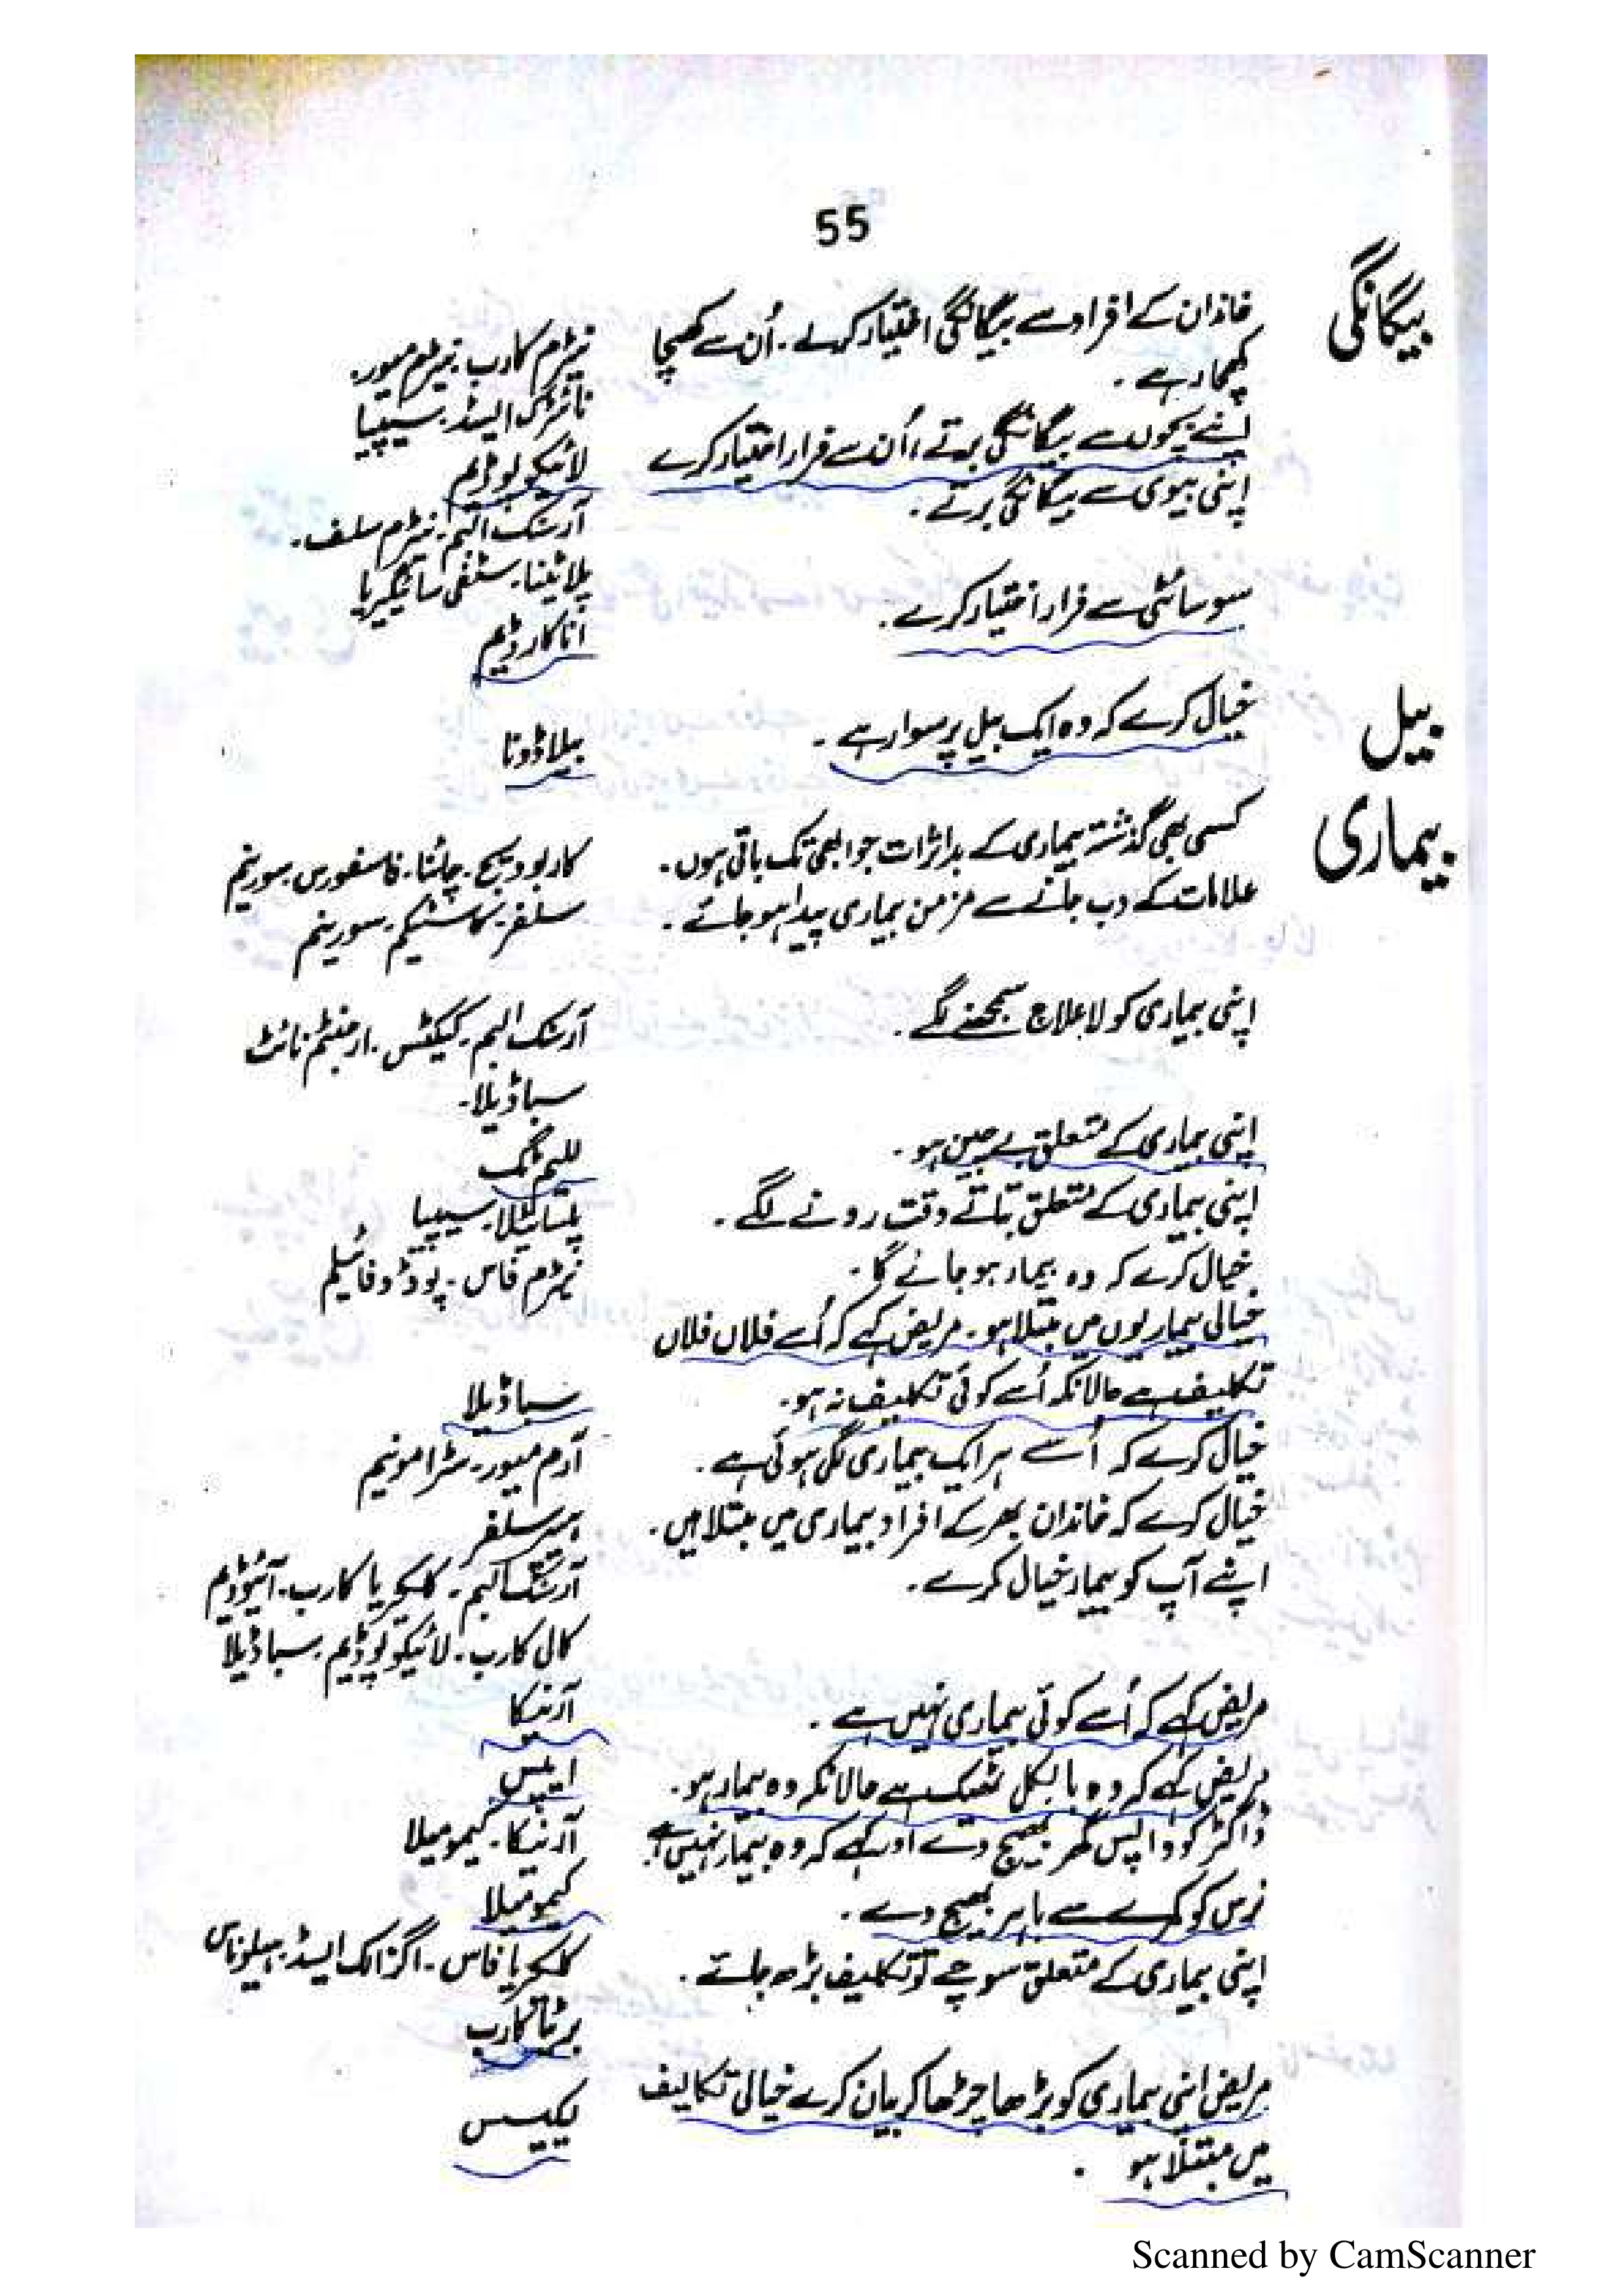 55
بیگانگی
خاندان کے افراد سے بیگانگی اختیار کرلے ۔ اُن سے کھچا
کھچا رہے ۔
نیٹرم کارب ۔ نیٹرم میور ۔
نائٹرک ایسڈ ۔ سیپیا
اپنے بچوں سے بیگانگی برتے ، اُن سے فرار اختیار کرے
لائیکوپوڈیم
اپنی بیوی سے بیگانگی برتے ۔
آرسنک البم ۔ نیٹرم سلف ۔
پلاٹینا ۔ سٹفی سائیگیریا
سوسائٹی سے فرار اختیار کرے ۔
اناکارڈیم
بیل
خیال کرے کہ وہ ایک بیل پر سوار ہے ۔
بیلاڈونا
بیماری
کسی بھی گذشتہ بیماری کے بداثرات جو ابھی تک باقی ہوں ۔
کاربوویج ۔ چائنا ۔ فاسفورس ۔ سورینم
علامات کے دب جانے سے مزمن بیماری پیدا ہو جائے ۔
سلفر ۔ کاسٹیکم ۔ سورینم
اپنی بیماری کو لاعلاج سمجھنے لگے ۔
آرسنک البم ۔ کیکٹس ۔ ارجنٹم نائٹ
سباڈیلا ۔
اپنی بیماری کے متعلق بے چین ہو ۔
للیم ٹگ
اپنی بیماری کے متعلق بتاتے وقت رونے لگے ۔
پلساٹیلا ۔ سیپیا
خیال کرے کہ وہ بیمار ہو جائے گا ۔
نیٹرم فاس ۔ پوڈوفائیلم
خیالی بیماریوں میں مبتلا ہو ۔ مریض کہے کہ اُسے فلاں فلاں
تکلیف ہے حالانکہ اُسے کوئی تکلیف نہ ہو ۔
سباڈیلا
خیال کرے کہ اُسے ہر ایک بیماری لگی ہوئی ہے ۔
آرم میور ۔ سٹرامونیم
خیال کرے کہ خاندان بھر کے افراد بیماری میں مبتلا ہیں ۔
ہیپر سلفر
اپنے آپ کو بیمار خیال کرے ۔
آرسنک البم ۔ کلکیریا کارب ۔ آئیوڈیم
کالی کارب ۔ لائیکوپوڈیم ۔ سباڈیلا
مریض کہے کہ اُسے کوئی بیماری نہیں ہے ۔
آرنیکا
مریض کہے کہ وہ بالکل ٹھیک ہے حالانکہ وہ بیمار ہو ۔
ایپس
ڈاکٹر کو واپس گھر بھیج دے اور کہے کہ وہ بیمار نہیں ہے ۔
آرنیکا ۔ کیمومیلا
نرس کو کمرے سے باہر بھیج دے ۔
کیمومیلا
اپنی بیماری کے متعلق سوچے تو تکلیف بڑھ جائے ۔
کلکیریا فاس ۔ اگزالک ایسڈ ۔ ہیلوناس
برٹا کارب
مریض اپنی بیماری کو بڑھا چڑھا کر بیان کرے خیالی تکالیف
میں مبتلا ہو ۔
لیکیسس
Scanned by CamScanner